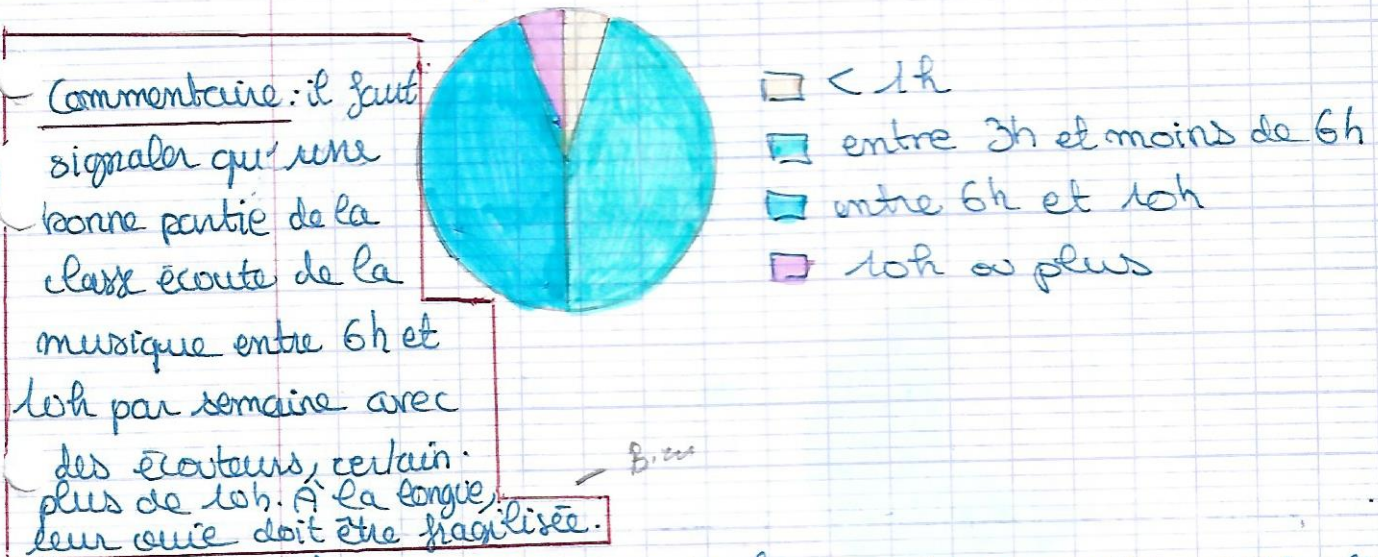 Commentaire : il faut
signaler qu'une
bonne partie de la
classe écoute de la
musique entre 6h et
10h par semaine avec
des écouteurs, certain
plus de 10h. À la longue,
leur ouie doit être fragilisée.
< 1h
entre 3h et moins de 6h
entre 6h et 10h
10h ou plus
Bien